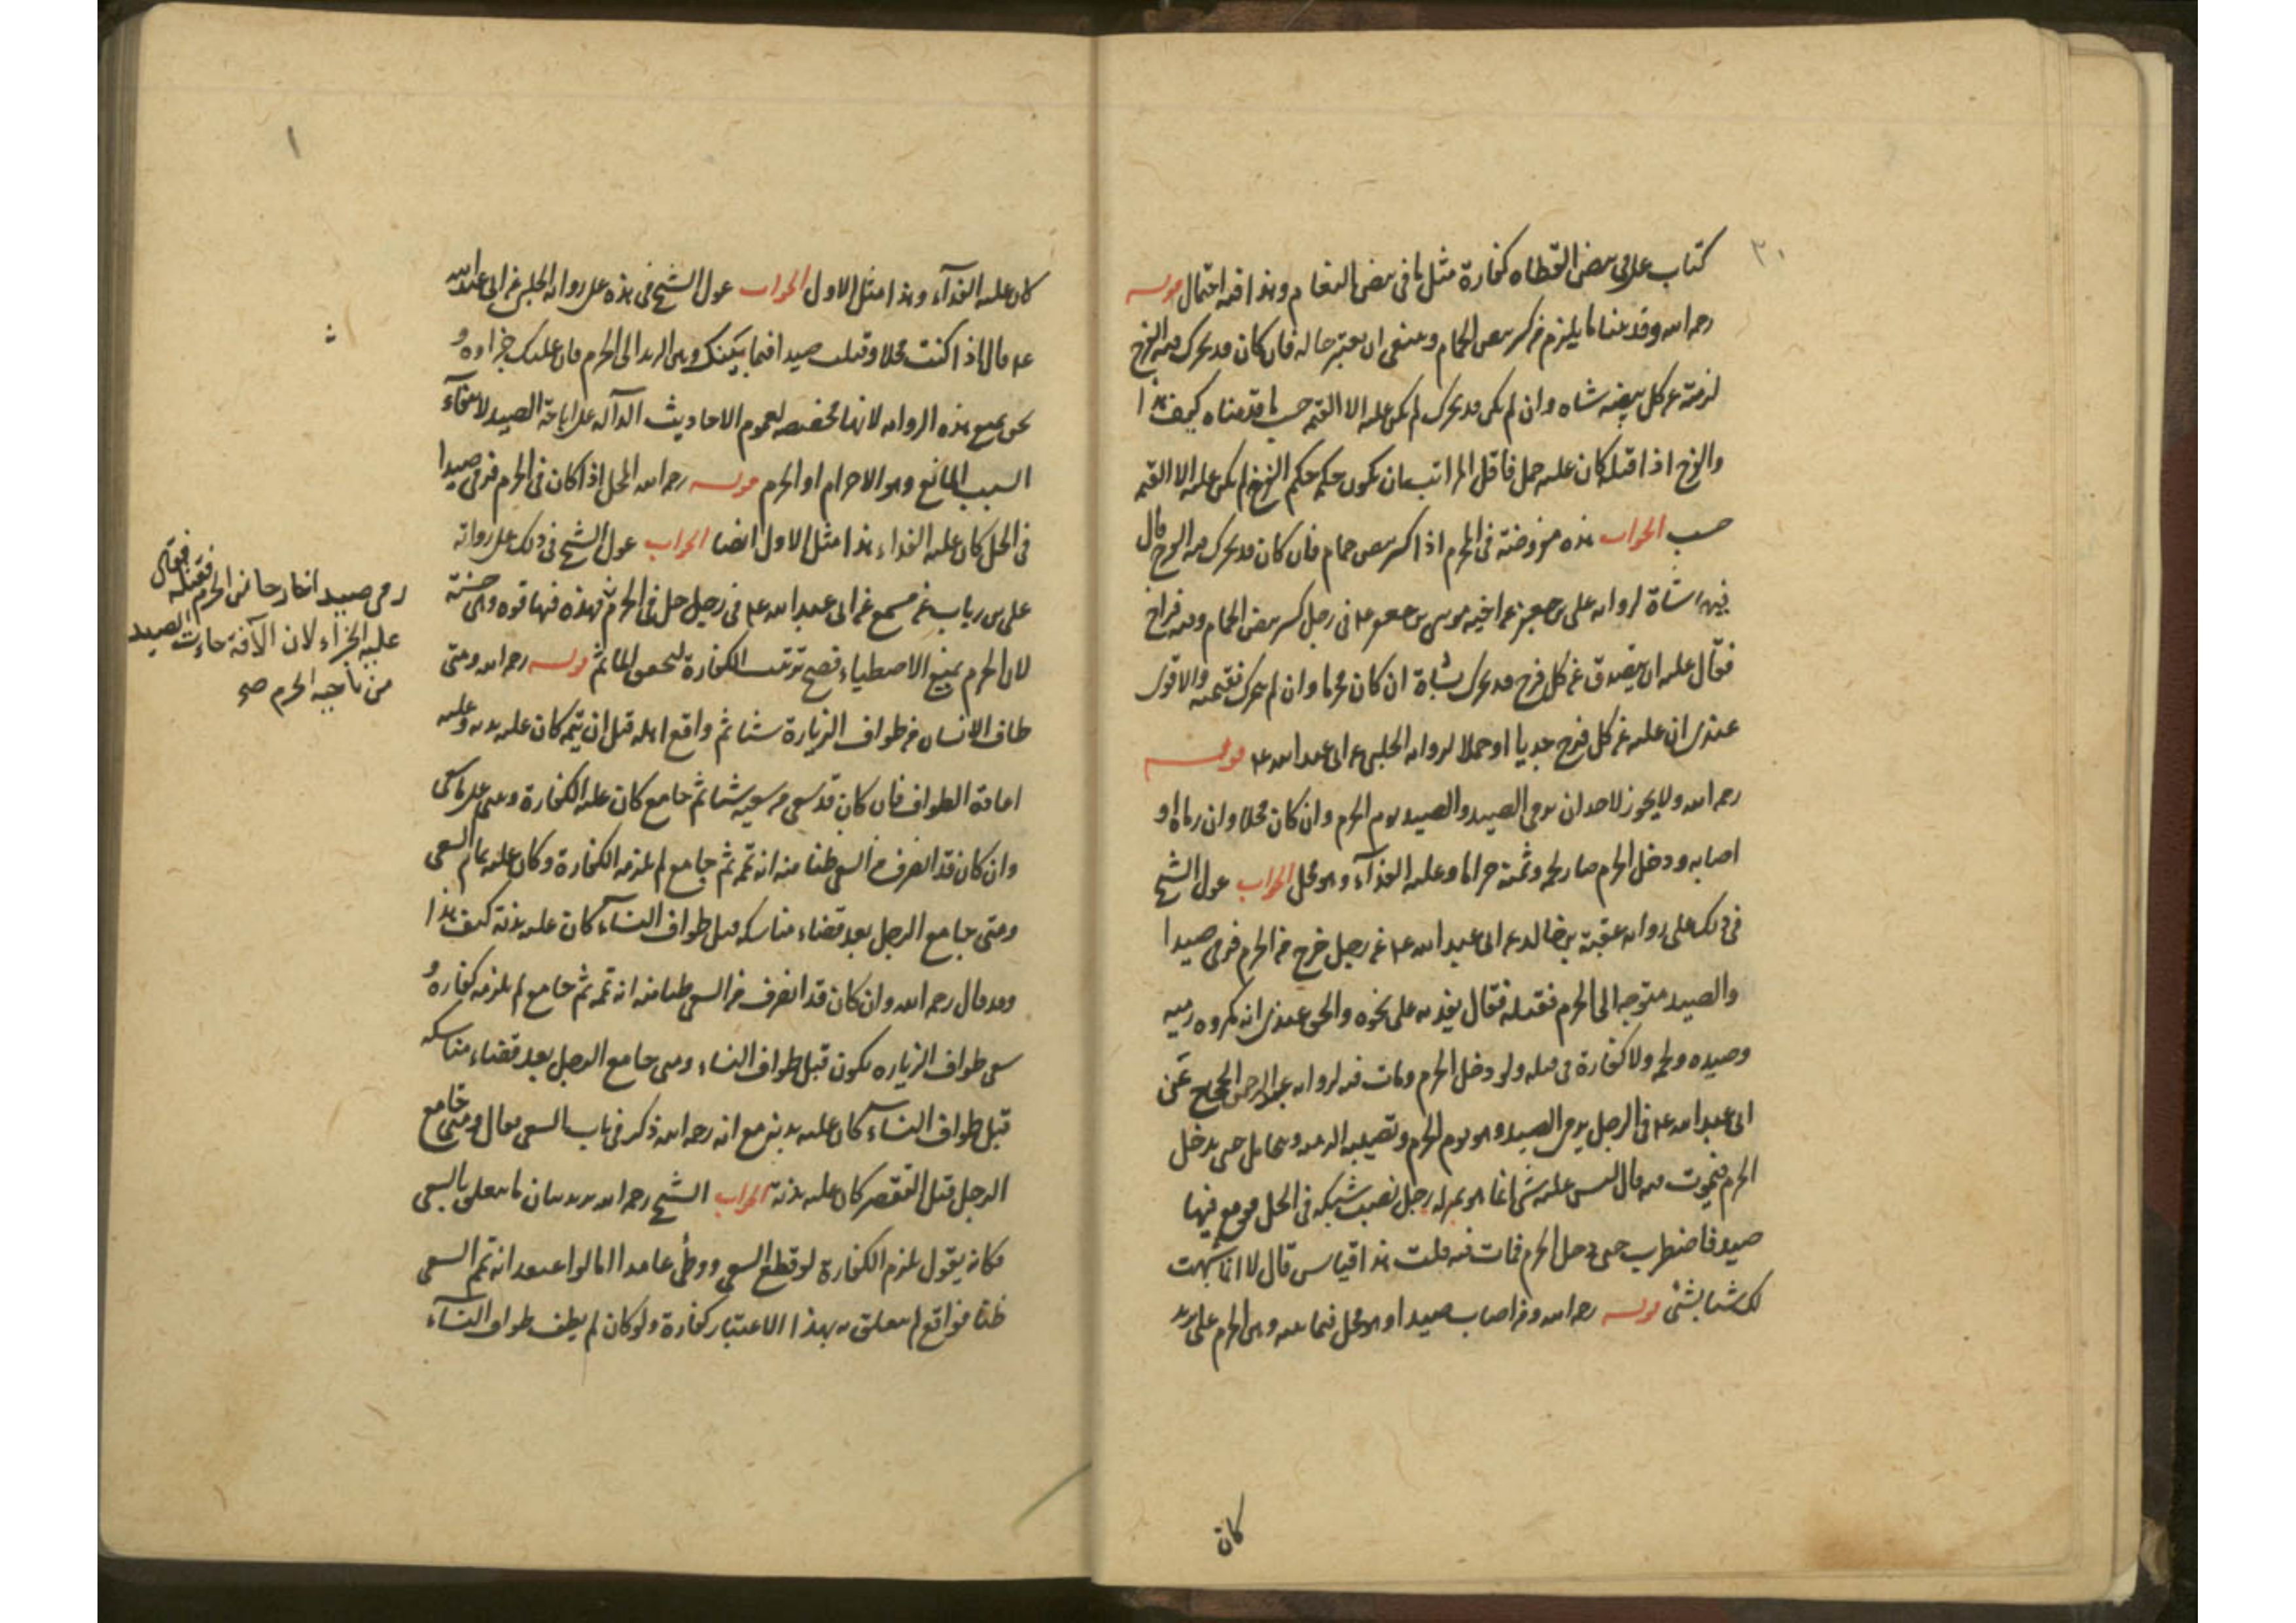 ٣٠
كتاب علي في بيض القطاه كفارة مثل ما في بيض النعام وهذا فيه احتمال قوله
رحمه الله وقد بينا ما يلزم من كسر بيض الحمام وينبغي ان يعتبر حاله فان كان قد تحرك فيه الفرخ
لزمه عن كل بيضه شاه وان لم يكن قد تحرك لم يكن عليه الا القيمه حسب ما قدمناه كيف هذا
والفرخ اذا قتله كان عليه حمل فاقل المراتب ان يكون حكمه حكم الفرخ لم يكن عليه الا القيمه
حسب الجواب هذه مفروضة في المحرم اذا كسر بيض حمام فان كان قد تحرك فيه الفرخ قال
فيها شاة لروايه علي بن جعفر عن اخيه موسى بن جعفر ع في رجل كسر بيض الحمام وفيه فراخ
فقال عليه ان يتصدق عن كل فرخ قد تحرك بشاة ان كان محرما وان لم يتحرك فقيمته والاقوى
عندي ان عليه عن كل فرخ جديا او حملا لروايه الحلبي عن ابي عبد الله ع قوله
رحمه الله ولا يجوز لاحد ان يرمي الصيد والصيد يوم الحرم وان كان محلا وان رماه او
اصابه ودخل الحرم صار لحمه وثمنه حراما وعليه الفدآء وهو محل الجواب عول الشيخ
في ذلك على روايه عقبة بن خالد عن ابي عبد الله ع عن رجل خرج من الحرم فرمى صيدا
والصيد متوجه الى الحرم فقتله فقال يفديه على نحوه والحق عندي انه مكروه رميه
وصيده ولحمه ولا كفارة في قتله ولو دخل الحرم ومات فيه لروايه عبد الرحمن الحجاج عن
ابي عبد الله ع في الرجل يرمي الصيد وهو يوم الحرم وتصيبه الرميه ويتحامل حتى يدخل
الحرم فيموت فيه قال ليس عليه شي انما هو بمنزله رجل نصب شبكه في الحل فوقع فيها
صيد فاضطرب حتى دخل الحرم فمات فيه قلت هذا قياس قال لا انما شبهت
لك شيا بشئ قوله رحمه الله ومن اصاب صيدا وهو محل فيما بينه وبين الحرم على بريد
كان
١
كان عليه الفدآء وهذا مثل الاول الجواب عول الشيخ في هذه على روايه الحلبي عن ابي عبد الله
ع قال اذا كنت محلا وقتلت صيدا فيما بينك وبين البريد الى الحرم فان عليك جزاوه و
نحن نمنع هذه الروايه لانها مخصصه لعموم الاحاديث الدآله على اباحة الصيد لانتفآء
السبب المانع وهو الاحرام او الحرم قوله رحمه الله المحل اذا كان في الحرم فرمى صيدا
في الحل كان عليه الفداء هذا مثل الاول ايضا الجواب عول الشيخ في ذلك على روايه
علي بن رياب عن مسمع عن ابي عبد الله ع في رجل حل في الحرم ثم فهذه فيها قوه وهي حسنة
لان الحرم يمنع الاصطياد فصح ترتب الكفارة لتحقق الماثم قوله رحمه الله ومتى
طاف الانسان من طواف الزيارة شيا ثم واقع اهله قبل ان يتمه كان عليه بدنه وعليه
اعادة الطواف فان كان قد سعى من سعيه شيا ثم جامع كان عليه الكفارة ويبني على ما سعى
وان كان قد انصرف من السعي ظنا منه انه تمه ثم جامع لم يلزمه الكفارة وكان عليه تمام السعي
ومتى جامع الرجل بعد قضاء مناسكه قبل طواف النسآء كان عليه بدنة كيف هذا
وقد قال رحمه الله وان كان قد انصرف من السعي ظنا منه انه تمه ثم جامع لم يلزمه كفاره و
سعي طواف الزياره يكون قبل طواف النساء ومتى جامع الرجل بعد قضاء مناسكه
قبل طواف النسآء كان عليه بدنه مع انه رحمه الله ذكر في باب السعي فقال ومتى جامع
الرجل قبل التقصير كان عليه بدنة الجواب الشيخ رحمه الله يريد بيان ما يتعلق بالسعي
فكانه يقول يلزم الكفارة لو قطع السعي ووطئ عامدا اما لو اعتقد انه تمم السعي
ظنا فواقع لم يتعلق به بهذا الاعتبار كفارة ولو كان لم يطف طواف النسآء
رمى صيدا خارجا من الحرم فقتله فقال
عليه الجزاء لان الآفة جاءت الصيد
من ناحيه الحرم صح